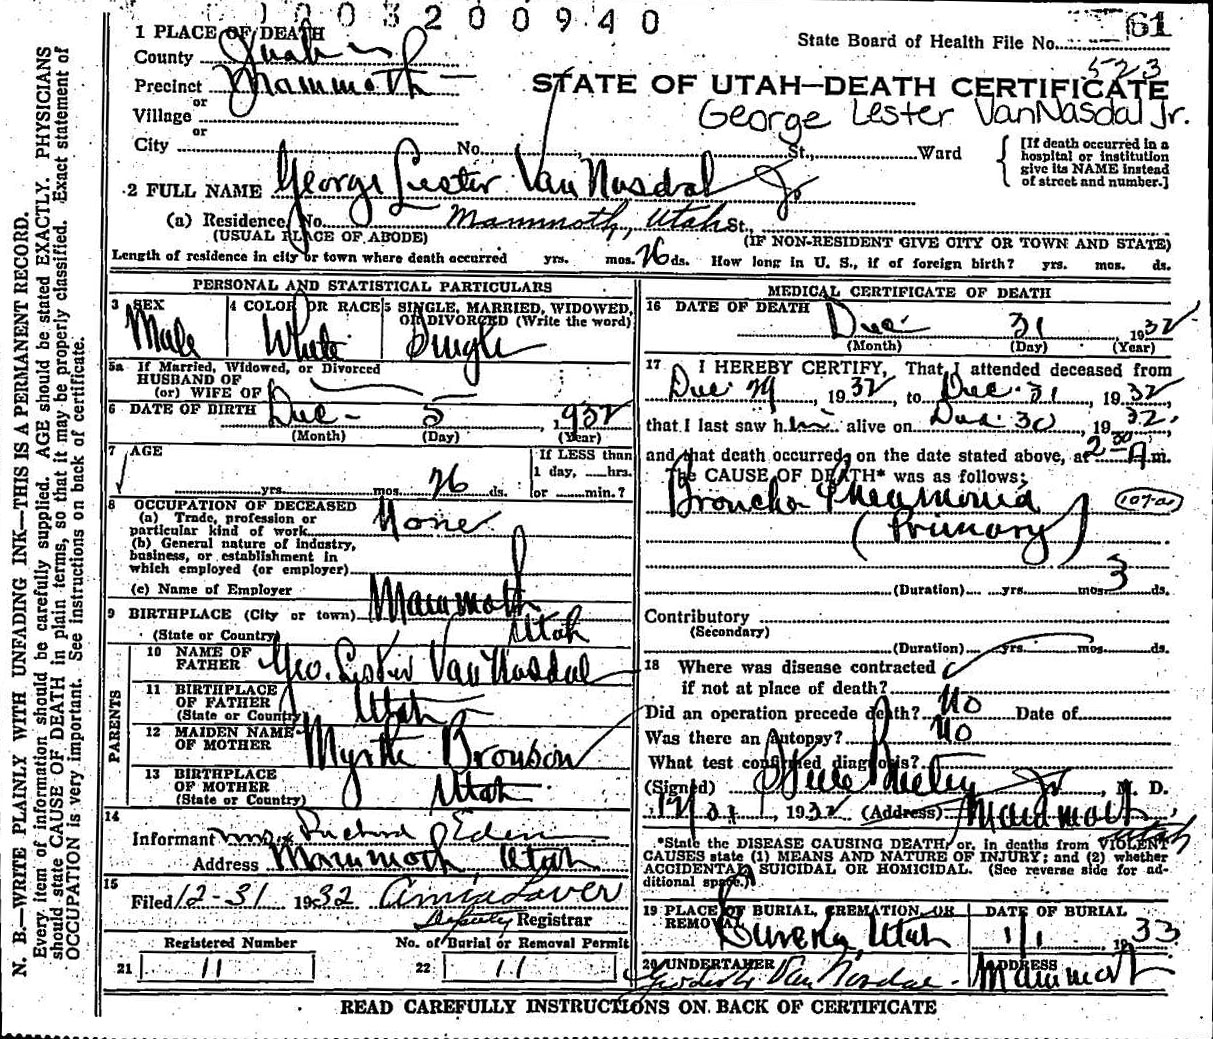 1003200940
61
State Board of Health File No.
523
1 PLACE OF DEATH
County Juab
Precinct Mammoth
or
Village
or
City No. St., Ward
STATE OF UTAH—DEATH CERTIFICATE
George Lester VanNasdal Jr.
[If death occurred in a
hospital or institution
give its NAME instead
of street and number.]
2 FULL NAME George Lester Van Nasdal Jr
(a) Residence, No. Mammoth, Utah St.,
(USUAL PLACE OF ABODE) (IF NON-RESIDENT GIVE CITY OR TOWN AND STATE)
Length of residence in city or town where death occurred yrs. mos. 26 ds. How long in U. S., if of foreign birth? yrs. mos. ds.
PERSONAL AND STATISTICAL PARTICULARS
3 SEX
Male
4 COLOR OR RACE
White
5 SINGLE, MARRIED, WIDOWED,
OR DIVORCED (Write the word)
Single
5a If Married, Widowed, or Divorced
HUSBAND OF
(or) WIFE OF
6 DATE OF BIRTH Dec - 5, 1932
(Month) (Day) (Year)
7 AGE
yrs. mos. 26 ds.
If LESS than
1 day, hrs.
or min.?
8 OCCUPATION OF DECEASED
(a) Trade, profession or
particular kind of work None
(b) General nature of industry,
business, or establishment in
which employed (or employer)
(c) Name of Employer
9 BIRTHPLACE (City or town) Mammoth
(State or Country) Utah
PARENTS
10 NAME OF
FATHER Geo. Lester Van Nasdal
11 BIRTHPLACE
OF FATHER
(State or Country) Utah
12 MAIDEN NAME
OF MOTHER Myrtle Bronson
13 BIRTHPLACE
OF MOTHER
(State or Country) Utah
14
Informant Mrs. Richard Eden
Address Mammoth Utah
15
Filed 12-31 1932
Deputy Registrar
Registered Number
21 11
No. of Burial or Removal Permit
22 11
MEDICAL CERTIFICATE OF DEATH
16 DATE OF DEATH
Dec 31 1932
(Month) (Day) (Year)
17 I HEREBY CERTIFY, That I attended deceased from
Dec 29, 1932, to Dec. 31, 1932
that I last saw him alive on Dec. 30, 1932,
and that death occurred, on the date stated above, at 2 30 A m.
The CAUSE OF DEATH* was as follows:
Broncho Pneumonia 107-a
(Primary)
(Duration) yrs. mos. 3 ds.
Contributory
(Secondary)
(Duration) yrs. mos. ds.
18 Where was disease contracted
if not at place of death?
Did an operation precede death? No Date of
Was there an autopsy? No
What test confirmed diagnosis?
(Signed) Steele Bailey Jr, M. D.
1, 1932 (Address) Mammoth
Utah
*State the DISEASE CAUSING DEATH, or, in deaths from VIOLENT
CAUSES state (1) MEANS AND NATURE OF INJURY; and (2) whether
ACCIDENTAL, SUICIDAL OR HOMICIDAL. (See reverse side for ad-
ditional space.)
19 PLACE OF BURIAL, CREMATION, OR
REMOVAL Beverly, Utah
DATE OF BURIAL
1/1 1933
20 UNDERTAKER
Van Nosdal
ADDRESS
Mammoth
READ CAREFULLY INSTRUCTIONS ON BACK OF CERTIFICATE
N. B.—WRITE PLAINLY WITH UNFADING INK—THIS IS A PERMANENT RECORD.
Every item of information should be carefully supplied. AGE should be stated EXACTLY. PHYSICIANS
should state CAUSE OF DEATH in plain terms, so that it may be properly classified. Exact statement of
OCCUPATION is very important. See instructions on back of certificate.